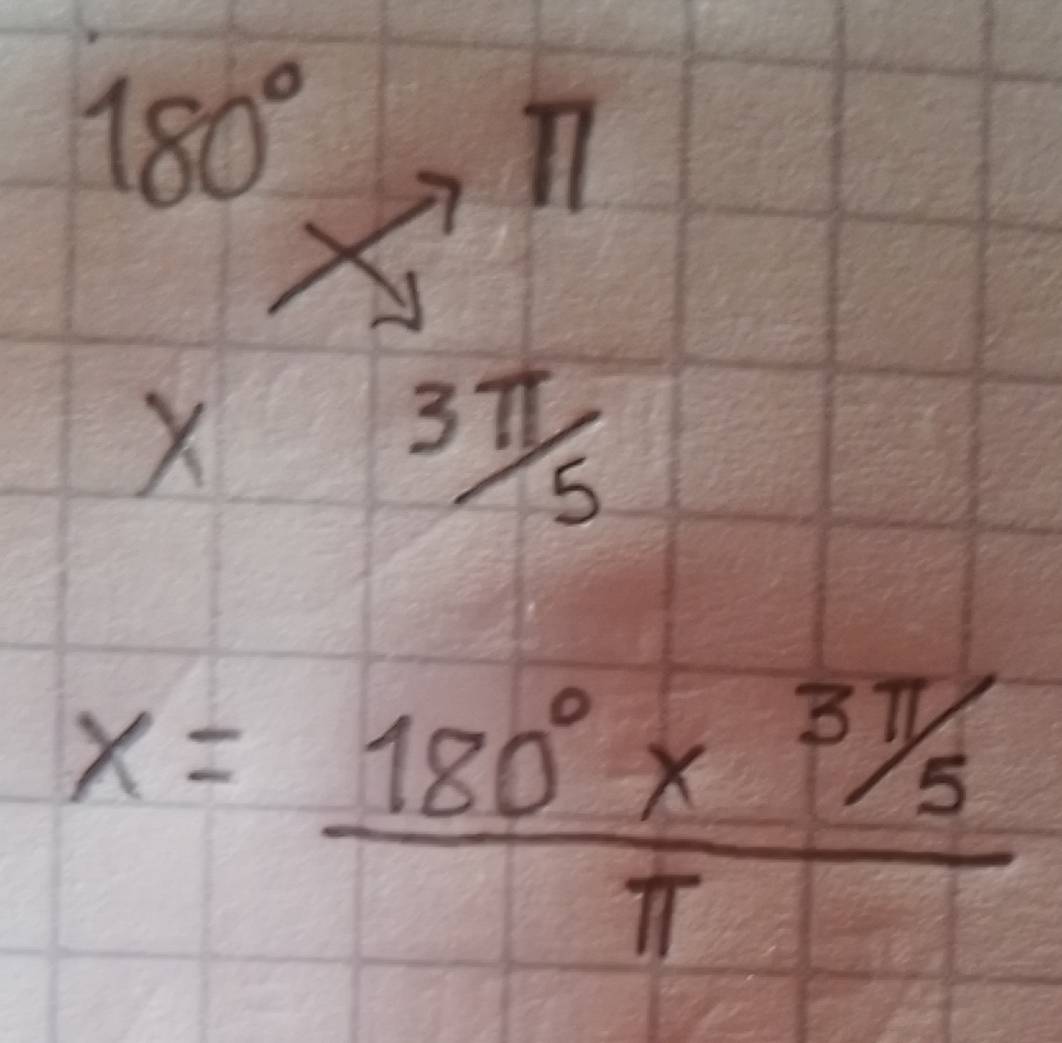 180° π
x 3π/5
x = 180° x 3π/5
π